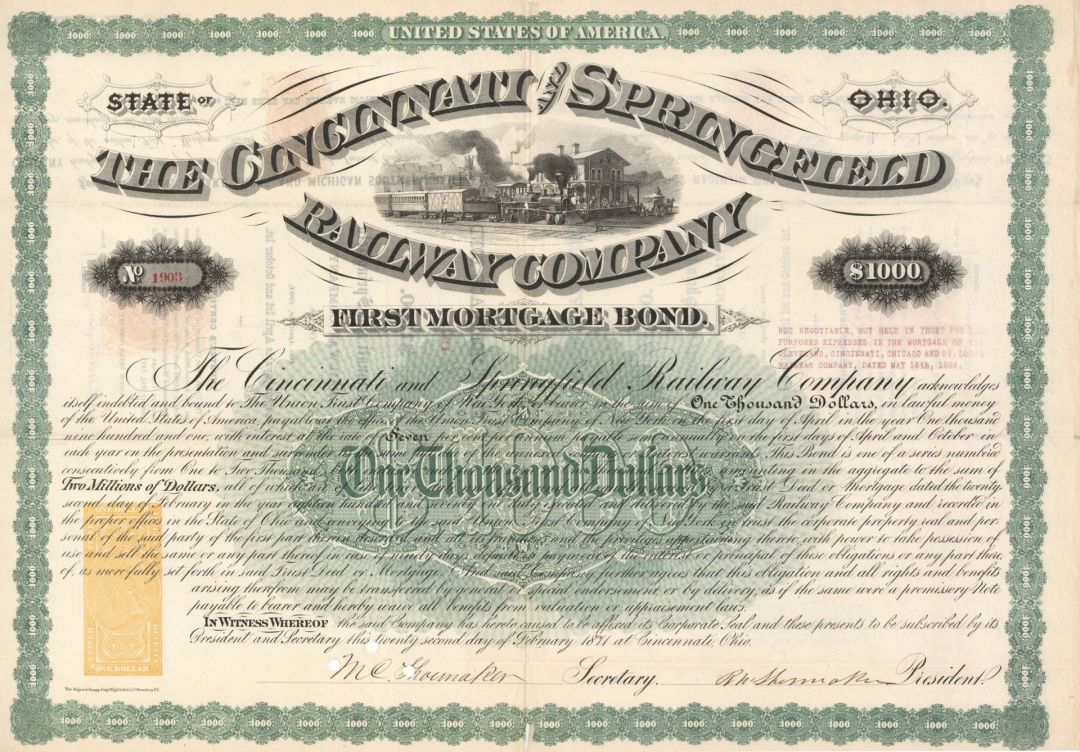 UNITED STATES OF AMERICA.
STATE OF OHIO.
THE CINCINNATI AND SPRINGFIELD
RAILWAY COMPANY
No 1903
$1000
FIRST MORTGAGE BOND.
NOT NEGOTIABLE, BUT HELD IN TRUST FOR
PURPOSES EXPRESSED IN THE MORTGAGE OF
CLEVELAND, CINCINNATI, CHICAGO AND ST. LOUIS
RAILWAY COMPANY, DATED MAY 15th,
The Cincinnati and Springfield Railway Company acknowledges
itself indebted and bound to The Union Trust Company of New York, or bearer in the sum of One Thousand Dollars, in lawful money
of the United States of America, payable at the office of the Union Trust Company of New York on the first day of April in the year One thousand
nine hundred and one, with interest at the rate of Seven per cent per annum payable semi-annually on the first days of April and October in
each year on the presentation and surrender at the same office of the annexed coupons or interest warrants. This Bond is one of a series numbered
consecutively from One to Two Thousand, amounting in the aggregate to the sum of
Two Millions of Dollars, all of which Trust Deed or Mortgage dated the twenty
second day of February in the year eighteen hundred and seventy one duly executed and delivered by the said Railway Company and recorded in
the proper offices in the State of Ohio and conveying to said Union Trust Company of New York in trust the corporate property real and per
sonal of the said party of the first part therein described and all its franchises and the privileges appertaining thereto, with power to take possession of
use and sell the same or any part thereof in case of days default in payment of the interest or principal of these obligations or any part there,
of, as more fully set forth in said Trust Deed or Mortgage. And said Company further agrees that this obligation and all rights and benefits
arising therefrom may be transferred by general or special endorsement, or by delivery, as if the same were a promissory Note
payable to bearer and hereby waive all benefits from valuation or appraisement laws.
IN WITNESS WHEREOF the said Company has hereto caused to be affixed its Corporate Seal and these presents to be subscribed by its
President and Secretary this twenty second day of February 1871 at Cincinnati, Ohio.
One Thousand Dollars
$1000
ONE DOLLAR
M C Shoemaker Secretary. R M Shoemaker President.